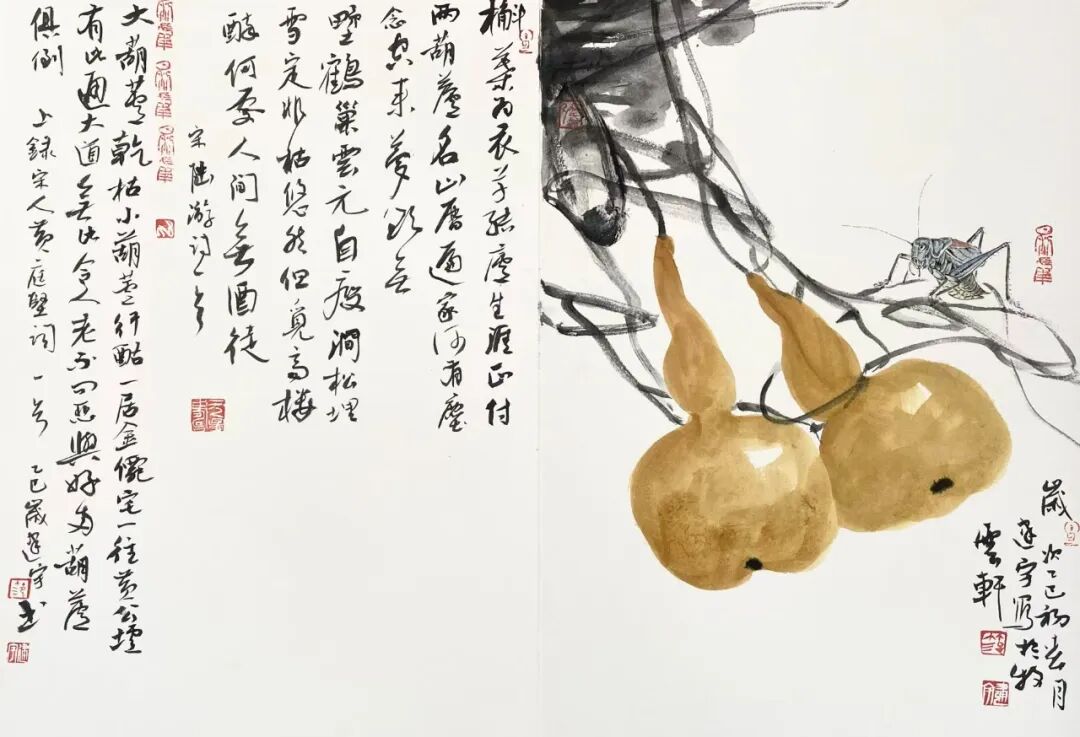 歲次乙巳初春月
建宇寫於牧
雲軒
槲葉為衣草結廬生涯正付
兩葫蘆名山曆遍家何有塵
念空来夢亦無
野鶴巢雲元自瘦澗松埋
雪定非枯悠然但覓高樓
醉何處人間無酒徒
宋陸游詩一首
大葫蘆乾枯小葫蘆行酤一居金僊宅一往黃公壚
有此通大道無此令人老不問惡與好兩葫蘆
俱倒 上錄宋人黃庭堅詞一首 乙巳歲建宇書